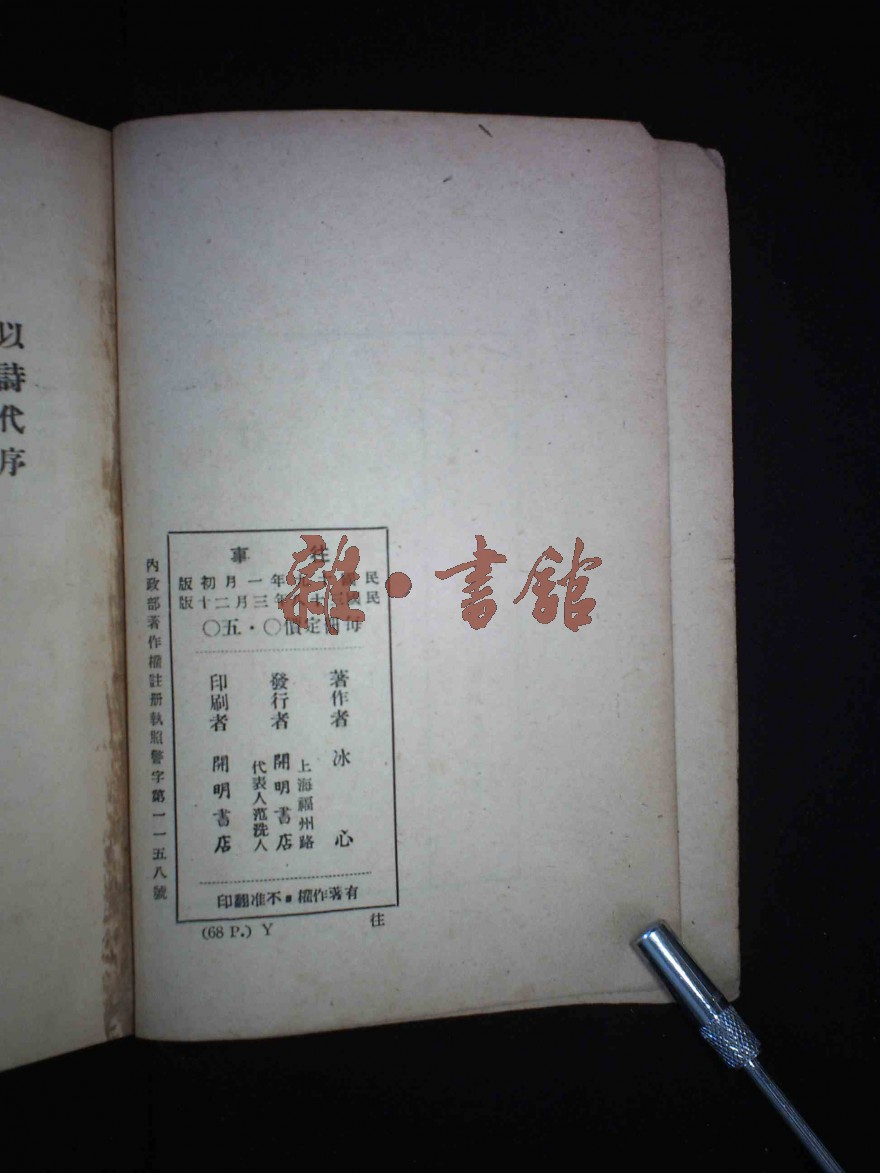 往事
民國十九年一月初版
民國三十八年三月二十版
每冊定價〇・五〇
著作者 冰心
上海福州路
發行者 開明書店
代表人范洗人
印刷者 開明書店
有著作權・不准翻印
往
(68 P.) Y
內政部著作權註册執照警字第一一五八號
以詩代序
雜・書館